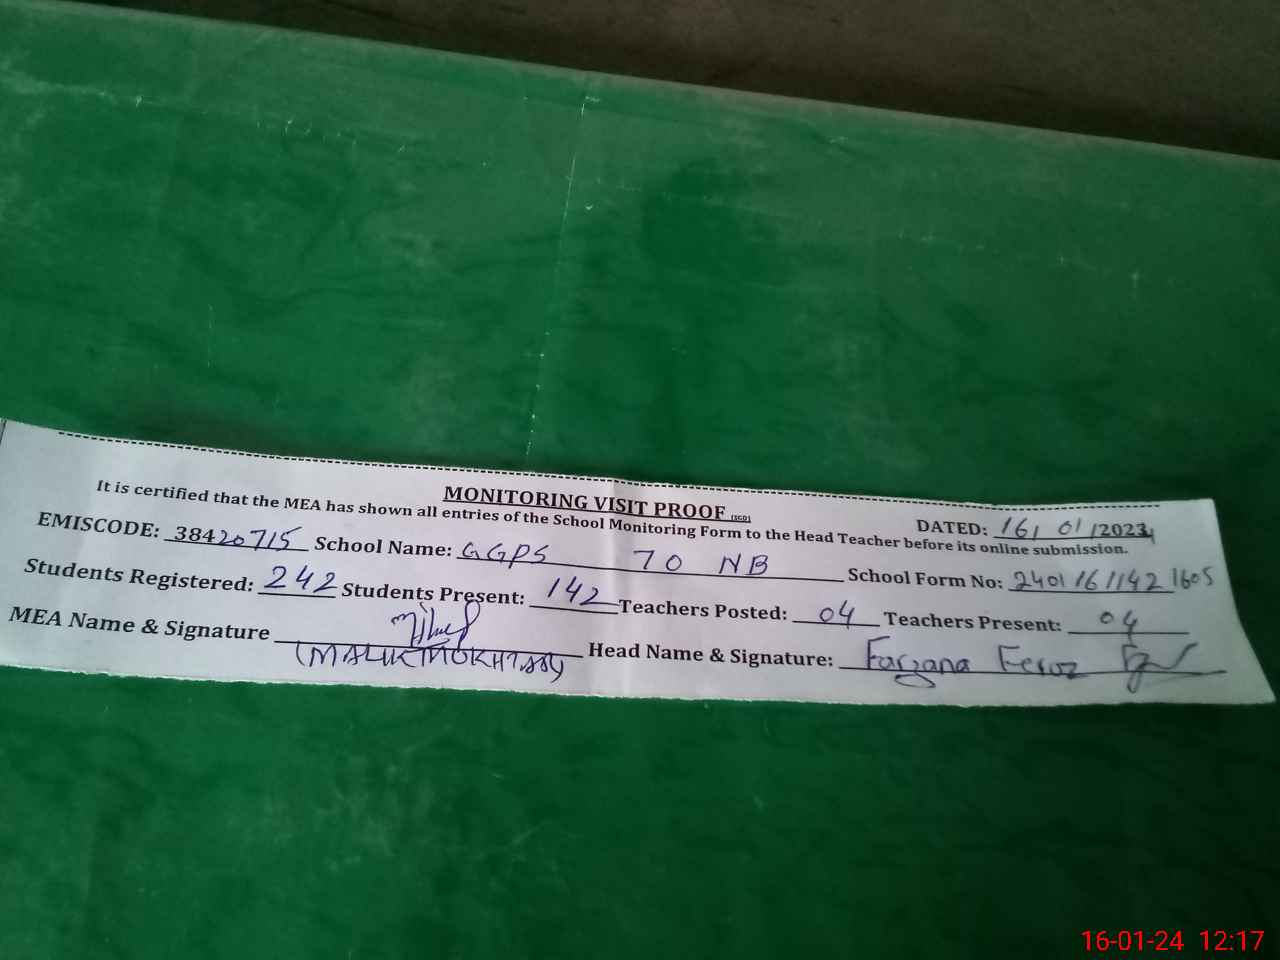 MONITORING VISIT PROOF (SGD)
It is certified that the MEA has shown all entries of the School Monitoring Form to the Head Teacher before its online submission.
DATED: 16/01/2024
EMISCODE: 38420715 School Name: GGPS 70 NB School Form No: 2401161142 1605
Students Registered: 242 Students Present: 142 Teachers Posted: 04 Teachers Present: 04
MEA Name & Signature Head Name & Signature: Farzana Feroz
(MALIK MOKHTAR)
16-01-24 12:17